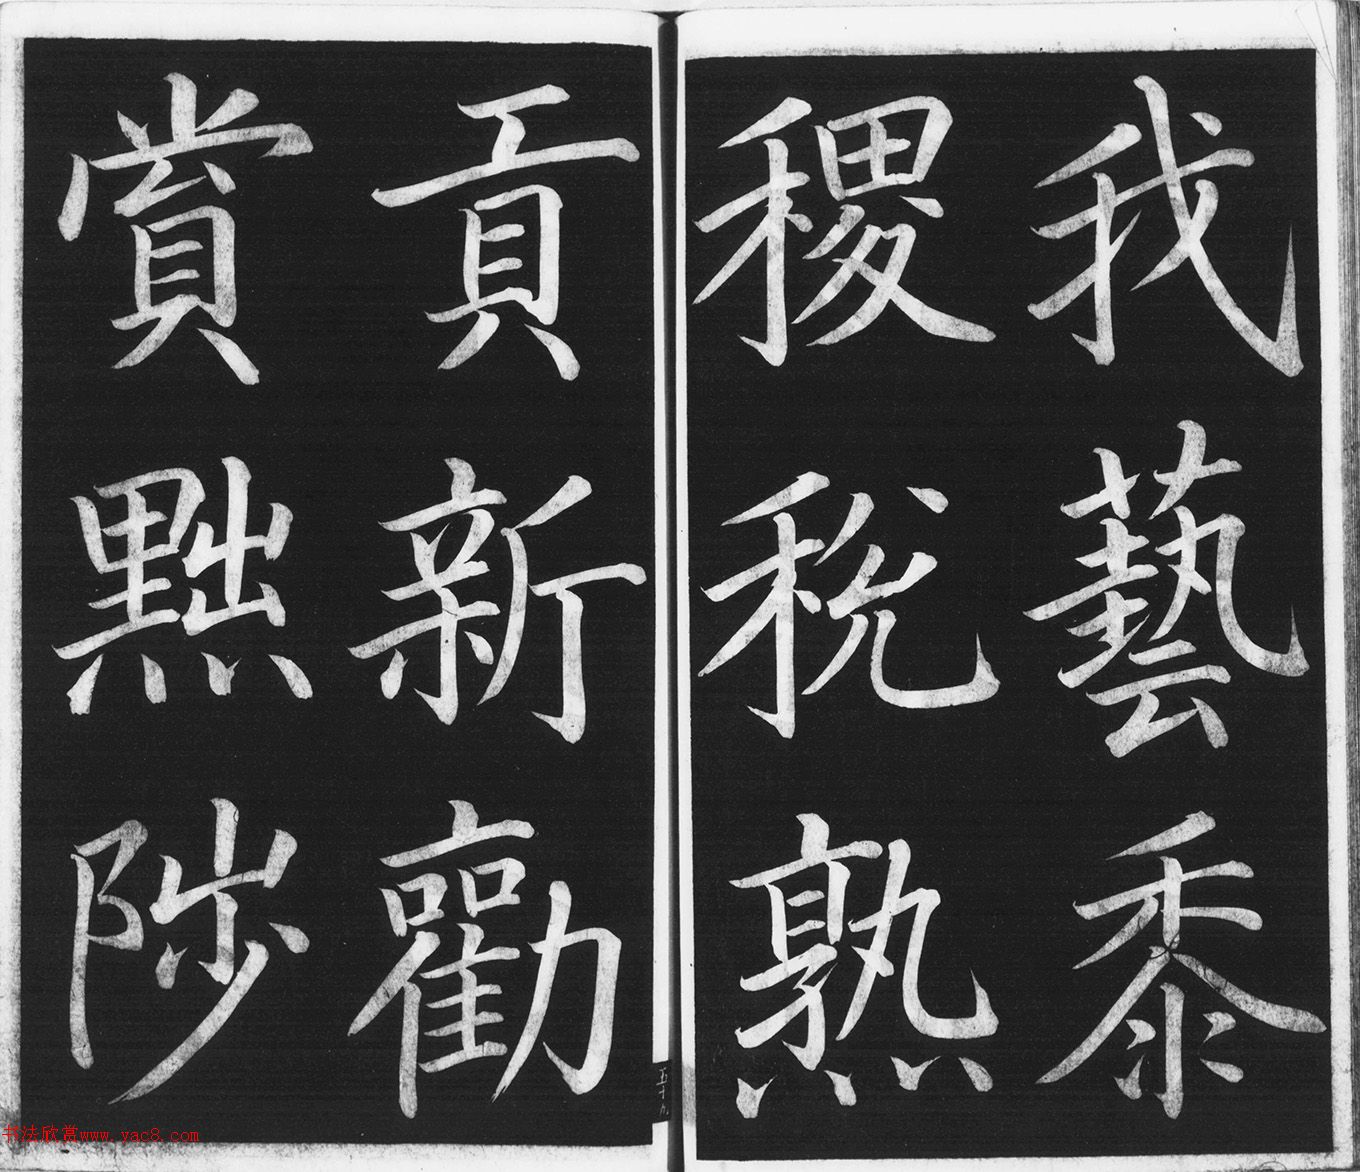 我藝黍
稷稅熟
貢新勸
賞黜陟
五十九
书法欣赏www.yac8.com